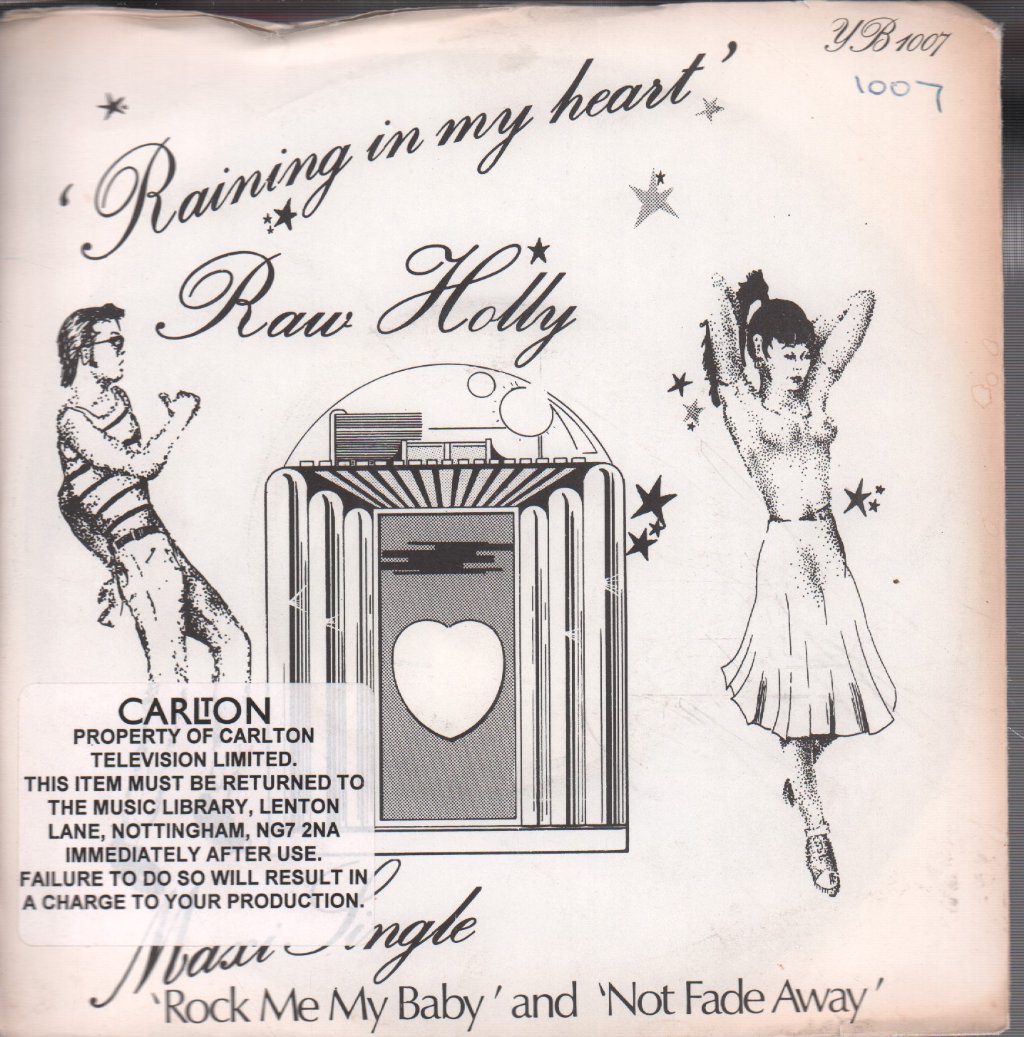 YB 1007
1007
'Raining in my heart'
Raw Holly
CARLTON
PROPERTY OF CARLTON
TELEVISION LIMITED.
THIS ITEM MUST BE RETURNED TO
THE MUSIC LIBRARY, LENTON
LANE, NOTTINGHAM, NG7 2NA
IMMEDIATELY AFTER USE.
FAILURE TO DO SO WILL RESULT IN
A CHARGE TO YOUR PRODUCTION.
Maxi Single
'Rock Me My Baby' and 'Not Fade Away'